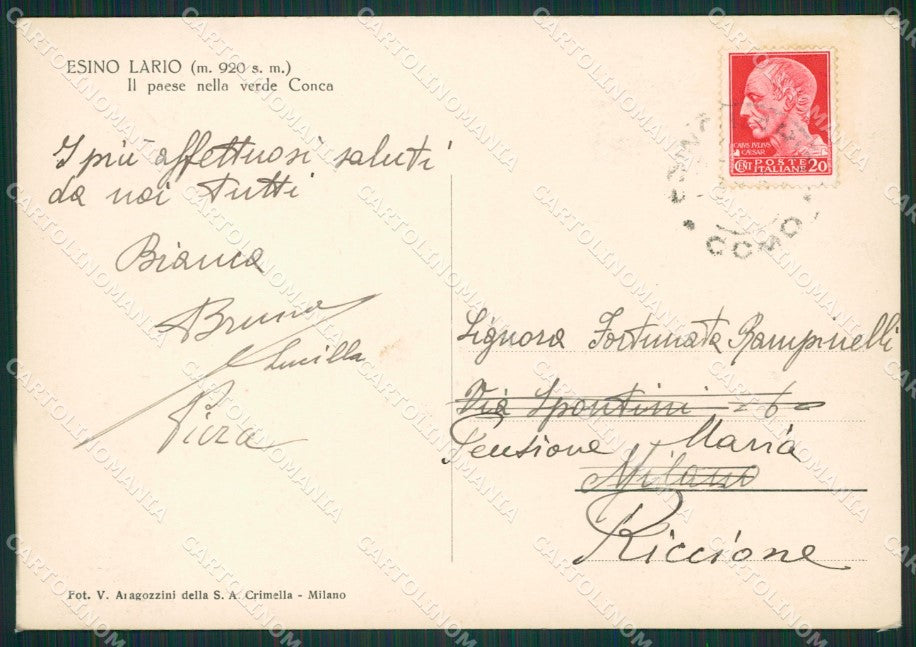 ESINO LARIO (m. 920 s. m.)
Il paese nella verde Conca
I più affettuosi saluti
da noi tutti
Bianca
Bruna
Lucilla
Piera
CAIVS IVLIVS
CAESAR
CENT POSTE
ITALIANE 20
COMO
Signora Fortunata Rampinelli
Via Spontini 6
Pensione Maria
Milano
Riccione
Fot. V. Aragozzini della S. A. Crimella - Milano
CARTOLINOMANIA